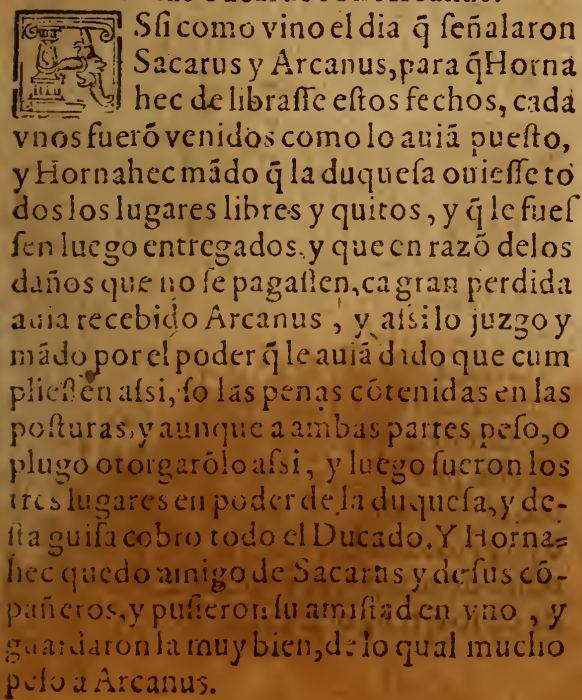 ASsi como vino el dia q̃ ſeñalaron
Sacarus y Arcanus, para q̃ Horna
hec de libraſſe eſtos fechos, cada
vnos fuerõ venidos como lo auiã pueſto,
y Hornahec mãdo q̃ la duqueſa ouieſſe to
dos los lugares libres y quitos, y q̃ le fueſ
ſen luego entregados. y que en razõ delos
daños que no ſe pagaſſen, ca gran perdida
auia recebido Arcanus, y aſsi lo juzgo y
mãdo por el poder q̃ le auiã dado que cum
plieſſen aſsi, ſo las penas cõtenidas en las
poſturas, y aunque a ambas partes peſo, o
plugo otorgarõlo aſsi, y luego fueron los
tres lugares en poder de la duqueſa, y de-
ſta guiſa cobro todo el Ducado. Y Horna=
hec quedo amigo de Sacarus y de ſus cõ-
pañeros, y puſieron ſu amiſtad en vno, y
guardaron la muy bien, de lo qual mucho
peſo a Arcanus.